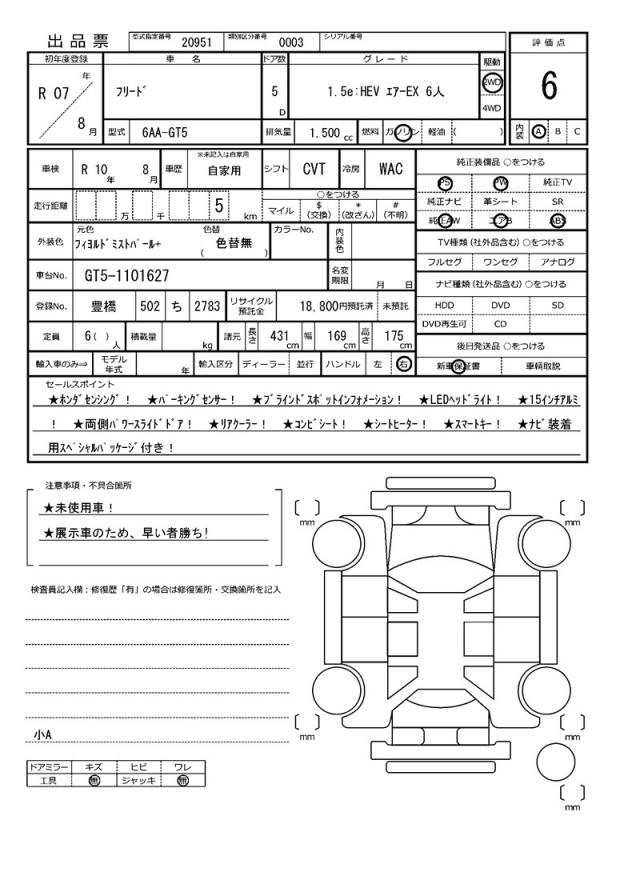 出品票 型式指定番号 20951 類別区分番号 0003 シリアル番号
評価点
初年度登録 車名 ドア数 グレード 駆動
R 07 年 8 月 フリード 5 D 1.5e:HEV エアーEX 6人 2WD 4WD
6
型式 6AA-GT5 排気量 1.500 cc 燃料 ガソリン 軽油 ( ) 内装 A B C
車検 R 10 年 8 月 車歴 ※未記入は自家用 自家用 シフト CVT 冷房 WAC
純正装備品 ○をつける
PS PW 純正TV
純正ナビ 革シート SR
純正AW エアB ABS
走行距離 万 千 5 km ○をつける マイル $(交換) *(改ざん) #(不明)
外装色 元色 フィヨルドミストパール+ 色替 ( 色替無 ) カラーNo. 内装色
TV種類 (社外品含む) ○をつける
フルセグ ワンセグ アナログ
車台No. GT5-1101627 名変期限 月 日
ナビ種類 (社外品含む) ○をつける
登録No. 豊橋 502 ち 2783 リサイクル預託金 18,800円預託済 未預託
HDD DVD SD
DVD再生可 CD
定員 6( ) 人 積載量 kg 諸元 長さ 431 cm 幅 169 cm 高さ 175 cm
後日発送品 ○をつける
輸入車のみ⇒ モデル年式 年 輸入区分 ディーラー 並行 ハンドル 左 右
新車保証書 車輌取説
セールスポイント
★ホンダセンシング! ★パーキングセンサー! ★ブラインドスポットインフォメーション! ★LEDヘッドライト! ★15インチアルミ
! ★両側パワースライドドア! ★リアクーラー! ★コンビシート! ★シートヒーター! ★スマートキー! ★ナビ装着
用スペシャルパッケージ付き!
注意事項・不具合箇所
★未使用車!
★展示車のため、早い者勝ち!
検査員記入欄:修復歴「有」の場合は修復箇所・交換箇所を記入
小A
ドアミラー キズ ヒビ ワレ
工具 無 ジャッキ 無
[ ] mm
[ ] mm
[ ] mm
[ ] mm
[ ] mm